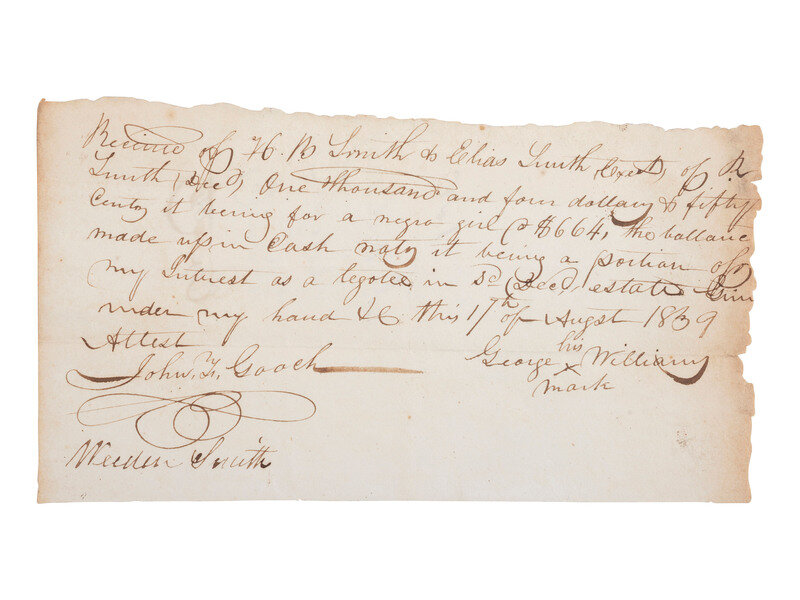 Received of H. B Smith & Elias Smith Exect, of B
Smith, Decd, One thousand and four dollars & fifty
Cents it being for a negro girl @ $664, the ballance
made up in Cash notes it being a portion of
my Interest as a legotee in sd Decd, estate Given
under my hand &C. this 17th of Augst 1839
Attest
John, F, Gooch
George his Williams
x
mark
Weeden Smith